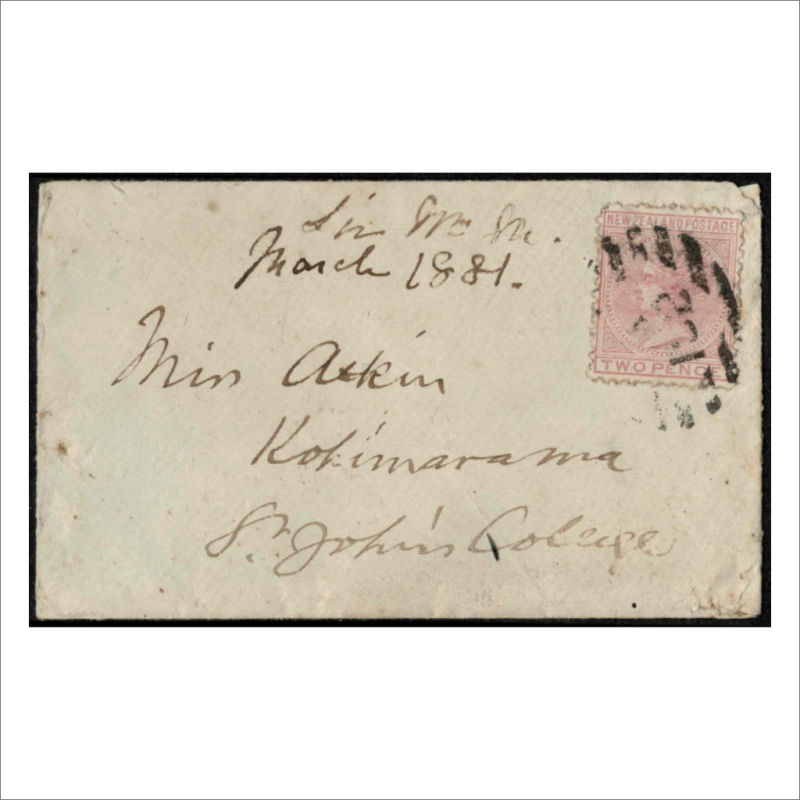 Sir Wm M.
March 1881.
NEW ZEALAND POSTAGE
TWO PENCE
Miss Atkin
Kohimarama
St. John's College